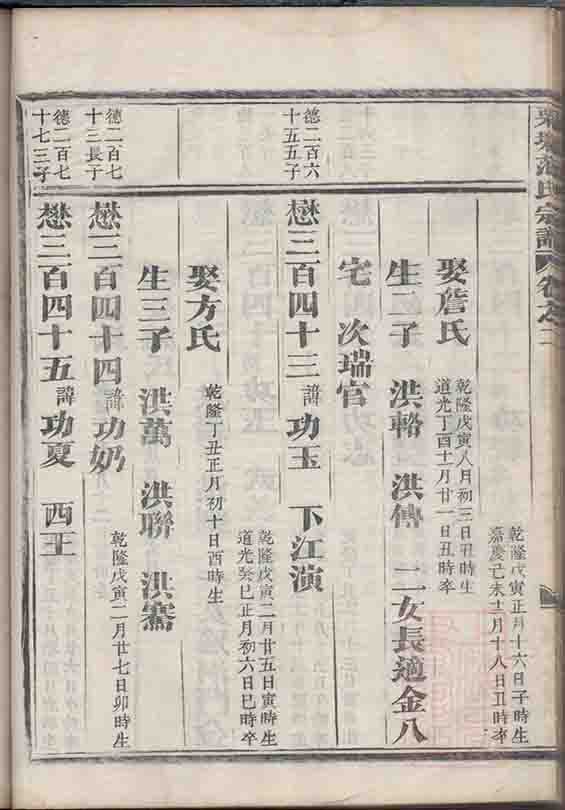 氏宗譜 卷之二
乾隆戊寅正月十六日子時生
嘉慶己未十二月十八日丑時卒
娶詹氏
乾隆戊寅八月初三日丑時生
道光丁酉十一月廿一日丑時卒
生二子 洪輅 洪傳 二女長適金八
宅 次瑞官
德二百六
十五五子
懋三百四十三 諱功玉 下江演
乾隆戊寅二月廿五日寅時生
道光癸巳正月初六日巳時卒
娶方氏
乾隆丁丑正月初十日酉時生
生三子 洪萬 洪聯 洪騫
德二百七
十三長子
懋三百四十四 諱功奶
乾隆戊寅二月廿七日卯時生
德二百七
十七三子
懋三百四十五 諱功夏 西王